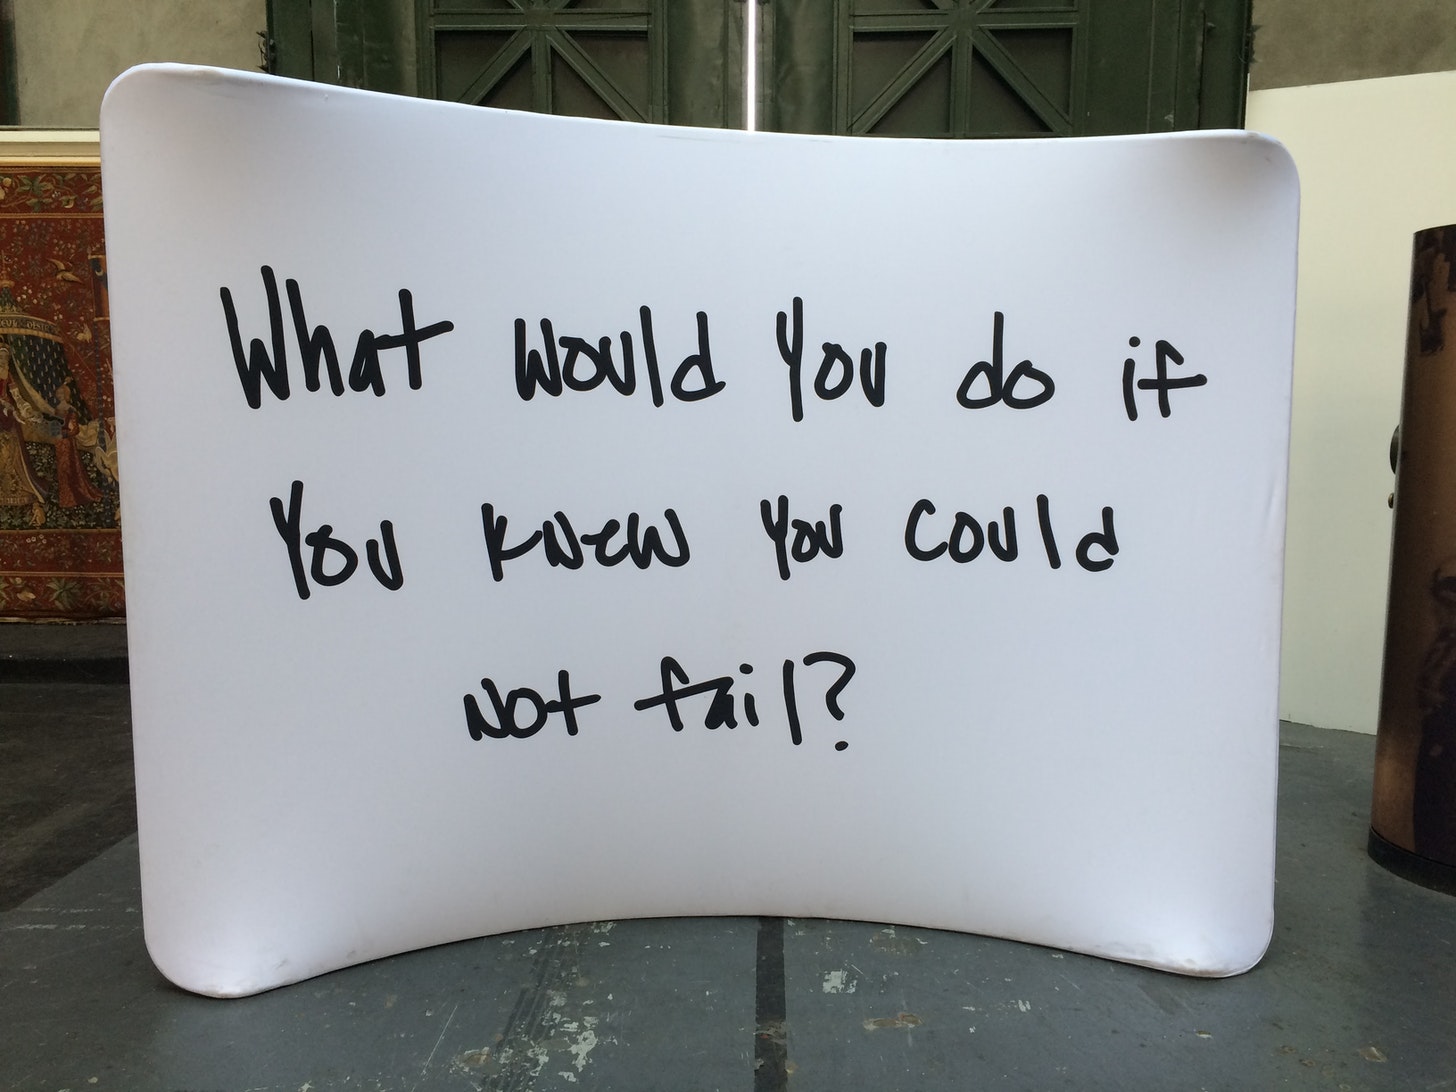 What would you do if
you knew you could
not fail?